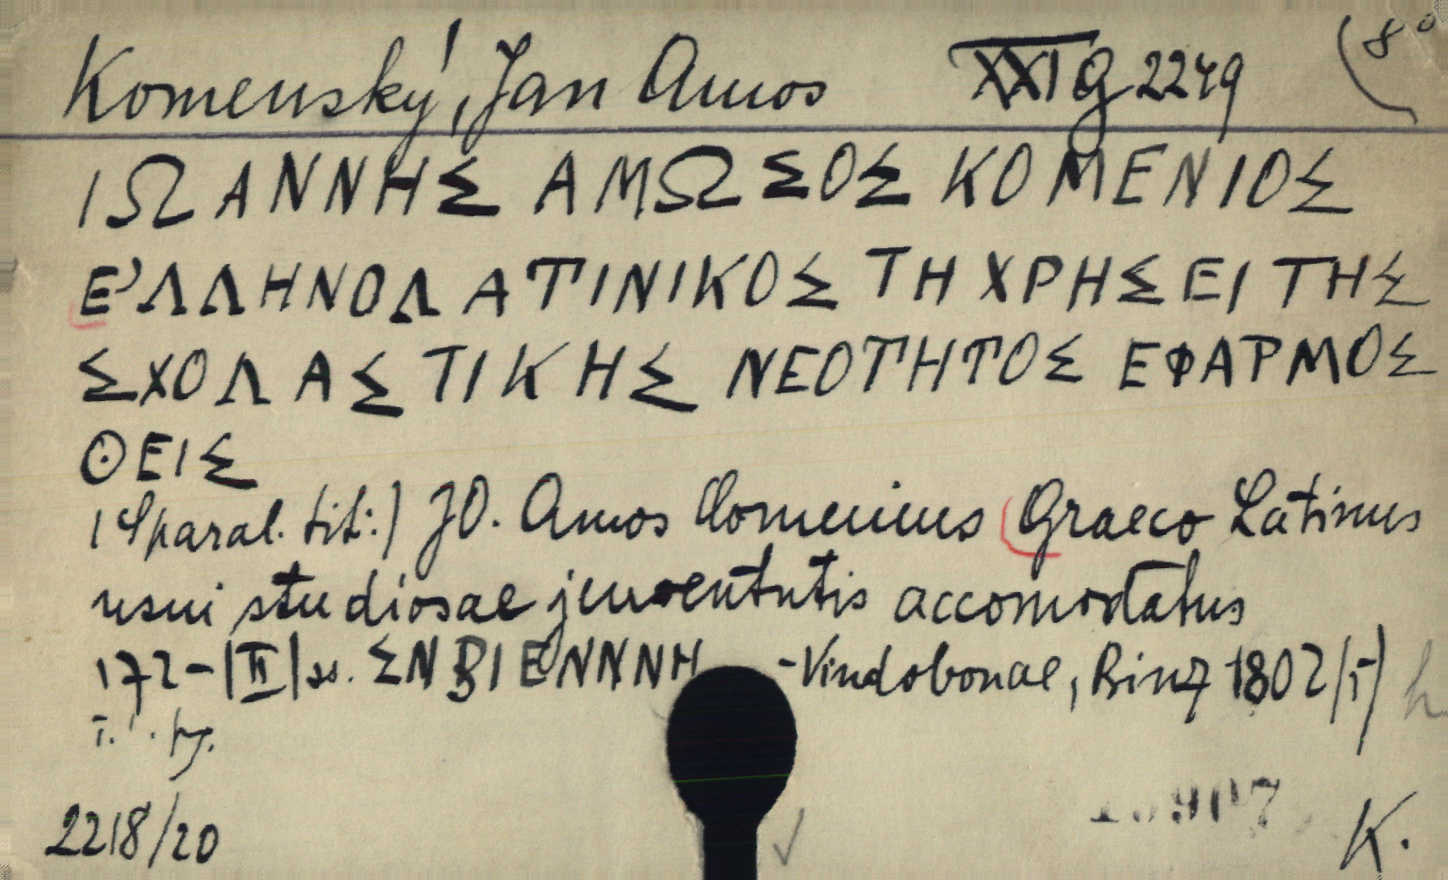 Komenský, Jan Amos XXI g 2249 (8°
ΙΩΑΝΝΗΣ ΑΜΩΣΟΣ ΚΟΜΕΝΙΟΣ
Ε'ΛΛΗΝΟΛΑΤΙΝΙΚΟΣ ΤΗ ΧΡΗΣΕΙ ΤΗΣ
ΣΧΟΛΑΣΤΙΚΗΣ ΝΕΟΤΗΤΟΣ ΕΦΑΡΜΟΣ
ΘΕΙΣ
(paral. tit:) JO. Amos Comenius Graeco Latinus
usui studiosae juventutis accomodatus
172-|II| ss. ΣΝ ΒΙΕΝΝΝΗ - Vindobonae, Binz 1802
2218/20 K.